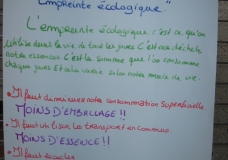 "Empreinte écologique"
L'empreinte écologique : c'est ce qu'on
utilise dans la vie de tous les jours. C'est nos déchets
notre essence. C'est la somme que l'on consomme
chaque jours et cela varie selon notre mode de vie.
• Il faut diminuer notre consommation superficielle
MOINS D'EMBALLAGE !!
• Il faut utiliser le transport en commun
MOINS D'ESSENCE !!
• Il faut recycler